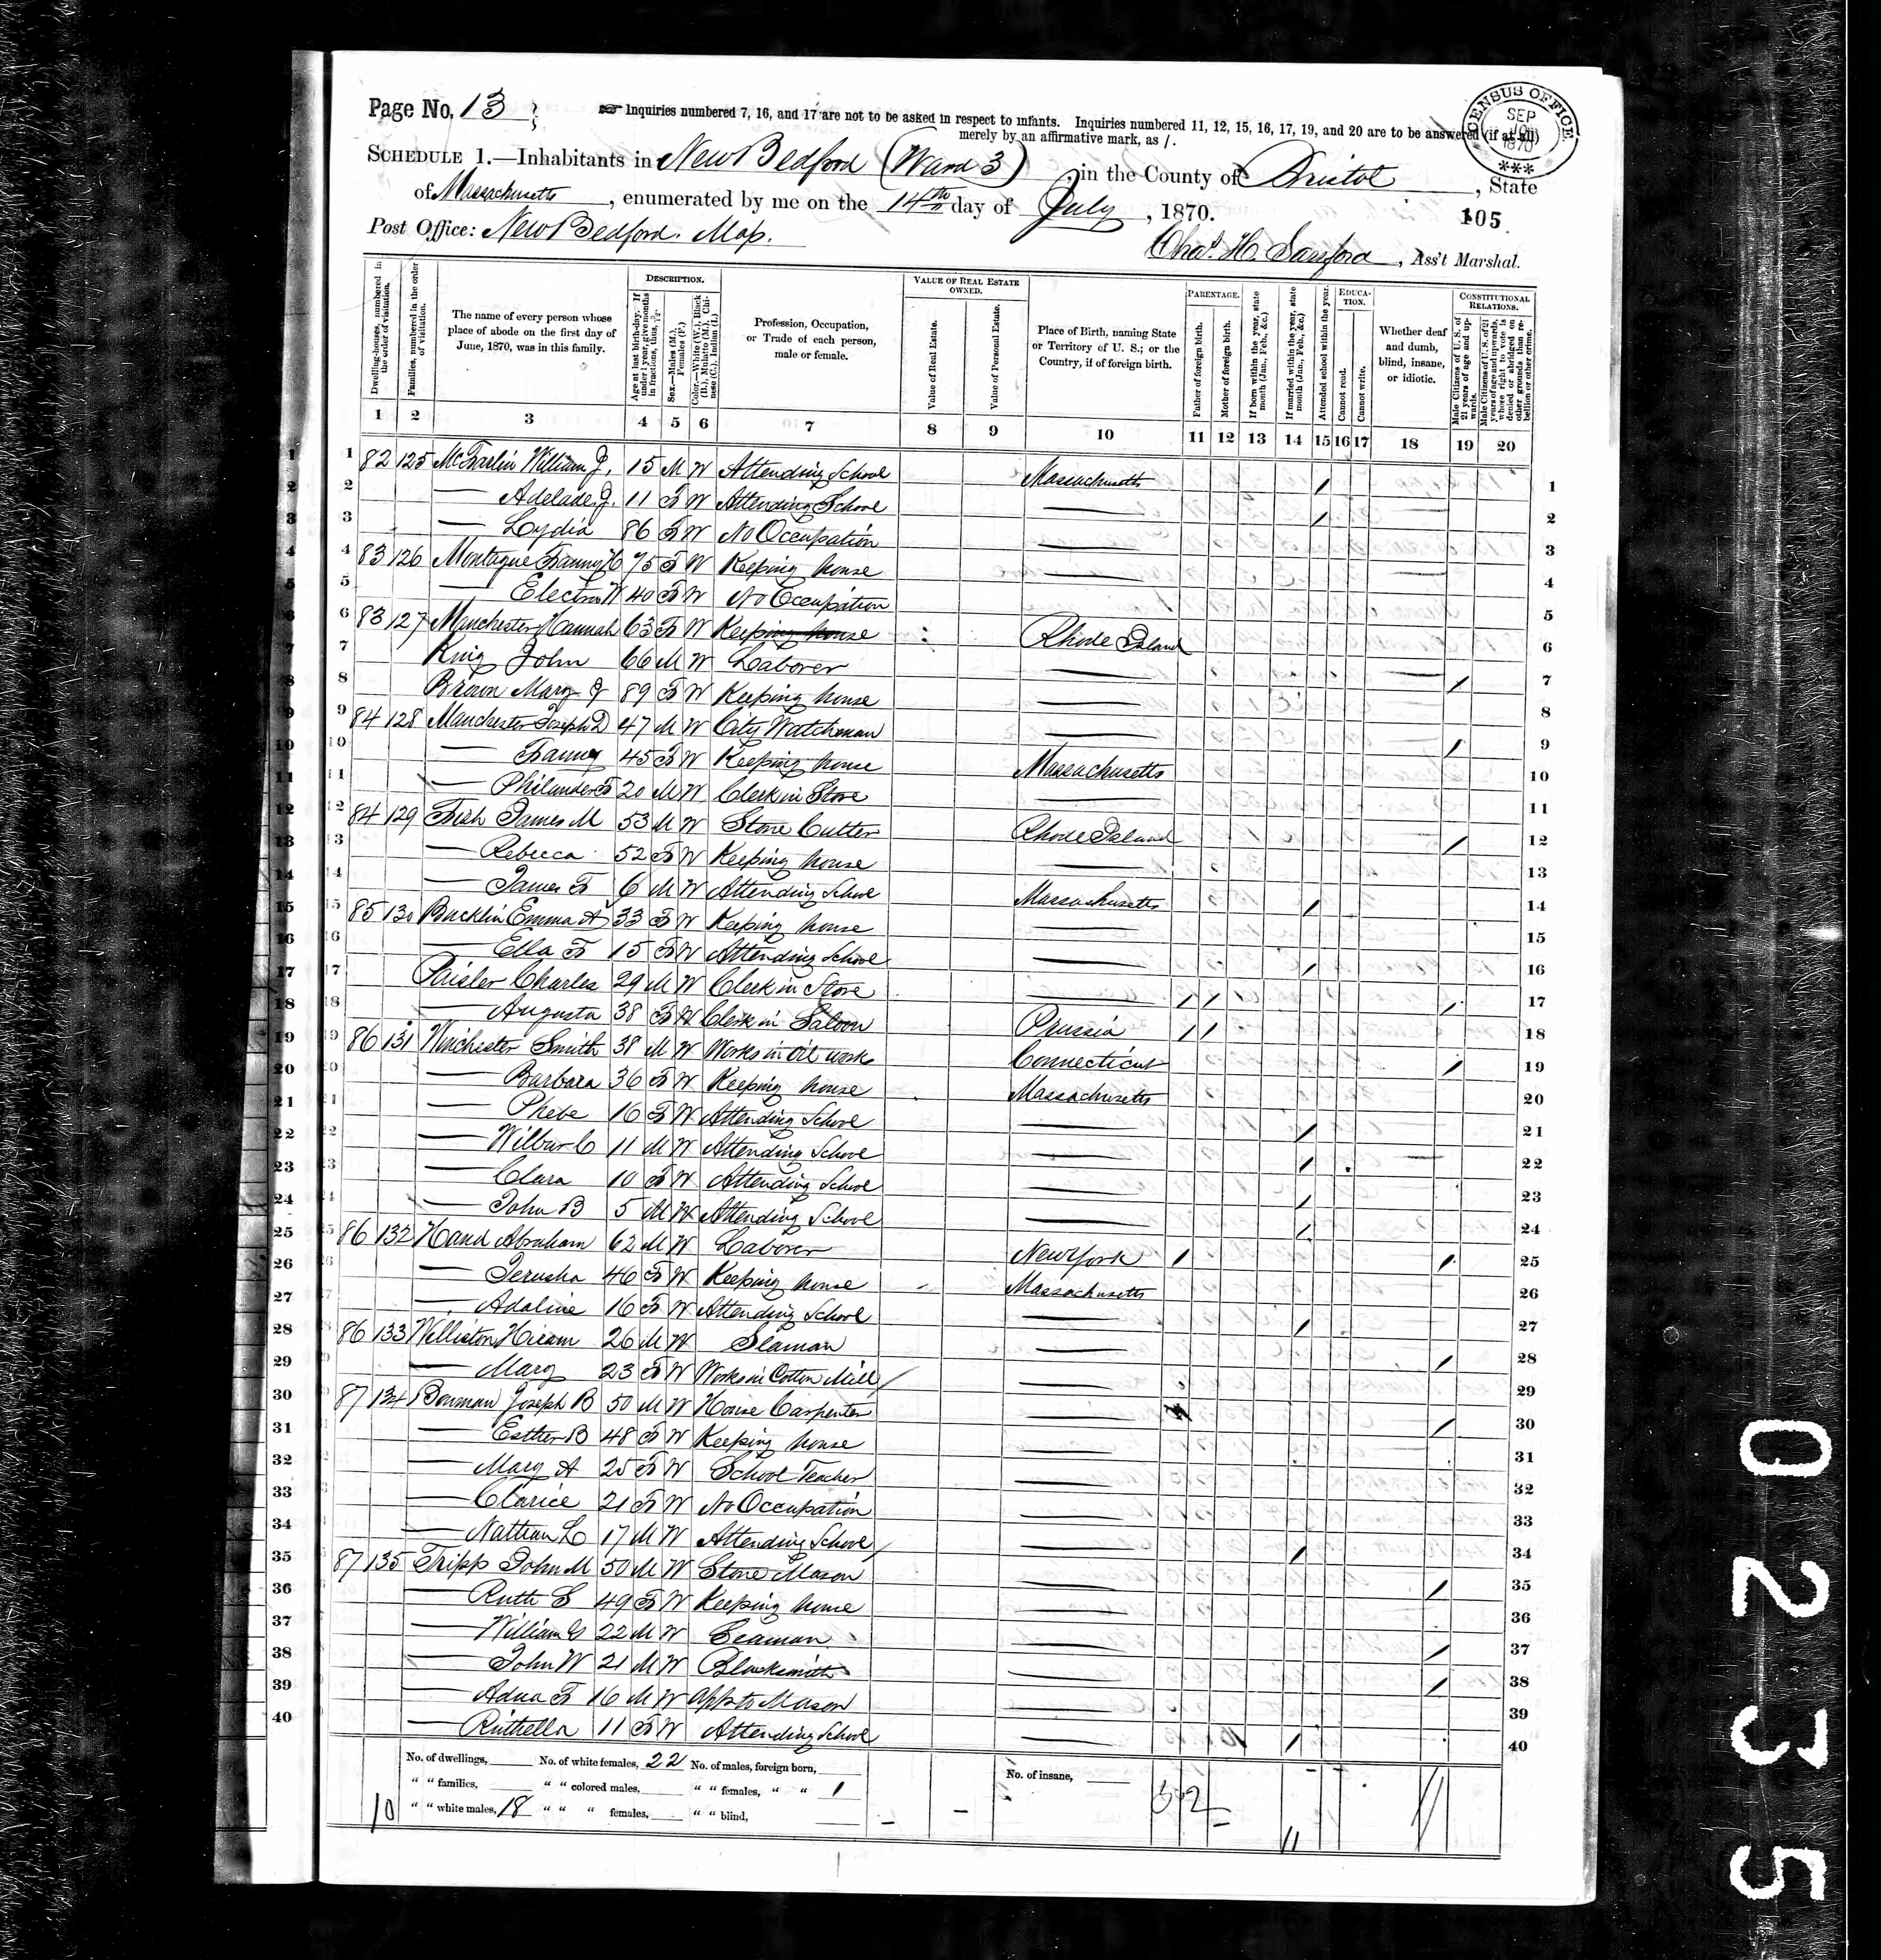 Page No. 13
☞ Inquiries numbered 7, 16, and 17 are not to be asked in respect to infants. Inquiries numbered 11, 12, 15, 16, 17, 19, and 20 are to be answered (if at all)
merely by an affirmative mark, as /.
CENSUS OFFICE
SEP
10
1870
***
SCHEDULE 1.—Inhabitants in New Bedford (Ward 3), in the County of Bristol, State
of Massachusetts, enumerated by me on the 14th day of July, 1870.
105
Post Office: New Bedford. Mass.
Chas. H. Sanford, Ass't Marshal.
Dwelling-houses, numbered in the order of visitation.
Families, numbered in the order of visitation.
The name of every person whose place of abode on the first day of June, 1870, was in this family.
DESCRIPTION.
Age at last birth-day. If under 1 year, give months in fractions, thus, 3/12.
Sex.—Males (M.), Females (F.)
Color.—White (W.), Black (B.), Mulatto (M.), Chinese (C.), Indian (I.)
Profession, Occupation, or Trade of each person, male or female.
VALUE OF REAL ESTATE OWNED.
Value of Real Estate.
Value of Personal Estate.
Place of Birth, naming State or Territory of U. S.; or the Country, if of foreign birth.
PARENTAGE.
Father of foreign birth.
Mother of foreign birth.
If born within the year, state month (Jan., Feb., &c.)
If married within the year, state month (Jan., Feb., &c.)
Attended school within the year.
EDUCATION.
Cannot read.
Cannot write.
Whether deaf and dumb, blind, insane, or idiotic.
CONSTITUTIONAL RELATIONS.
Male Citizens of U. S. of 21 years of age and upwards.
Male Citizens of U. S. of 21 years of age and upwards, whose right to vote is denied or abridged on other grounds than rebellion or other crime.
1 2 3 4 5 6 7 8 9 10 11 12 13 14 15 16 17 18 19 20
1 82 125 McFarlin William J. 15 M W Attending School Massachusetts / 1
2 — Adelade J. 11 F W Attending School — / 2
3 — Lydia 86 F W No Occupation — 3
4 83 126 Montague Fanny 75 F W Keeping house — 4
5 — Electra W 40 F W No Occupation 5
6 83 127 Manchester Hannah 63 F W Keeping house Rhode Island 6
7 King John 66 M W Laborer — / 7
8 Brown Mary J 89 F W Keeping house — 8
9 84 128 Manchester Joseph D 47 M W City Watchman — / 9
10 — Fanny 45 F W Keeping house Massachusetts 10
11 — Philander F 20 M W Clerk in Store — 11
12 84 129 Fish James M 53 M W Stone Cutter Rhode Island / 12
13 — Rebecca 52 F W Keeping house — 13
14 — James F 6 M W Attending School Massachusetts / 14
15 85 130 Bucklin Emma A 33 F W Keeping house — 15
16 — Ella F 15 F W Attending School — / 16
17 Paisler Charles 29 M W Clerk in Store — / / / 17
18 — Augusta 38 F W Clerk in Saloon Prussia / / 18
19 86 131 Winchester Smith 38 M W Works in Oil work Connecticut / 19
20 — Barbara 36 F W Keeping house Massachusetts 20
21 — Phebe 16 F W Attending School — / 21
22 — Wilbur C 11 M W Attending School — / 22
23 — Clara 10 F W Attending School — / 23
24 — John B 5 M W Attending School — / 24
25 86 132 Hand Abraham 62 M W Laborer New York / / 25
26 — Jerusha 46 F W Keeping house Massachusetts 26
27 — Adaline 16 F W Attending School — / 27
28 86 133 Williston Hiram 26 M W Seaman — / 28
29 — Mary 23 F W Works in Cotton Mill — 29
30 87 134 Bowman Joseph B 50 M W House Carpenter — / 30
31 — Esther B 48 F W Keeping house — 31
32 — Mary A 25 F W School Teacher — 32
33 — Clarice 21 F W No Occupation — 33
34 — Nathan L 17 M W Attending School — / 34
35 87 135 Tripp John M 50 M W Stone Mason — / 35
36 — Ruth S 49 F W Keeping house — 36
37 — William G 22 M W Seaman — / 37
38 — John W 21 M W Blacksmith — / 38
39 — F 16 M W App to Mason — 39
40 — Ruthella 11 F W Attending School — / 40
No. of dwellings, No. of white females, 22 No. of males, foreign born, No. of insane,
" " families, " " colored males, " " females, " " 1
10 " " white males, 18 " " " females, " " blind,
11
0235